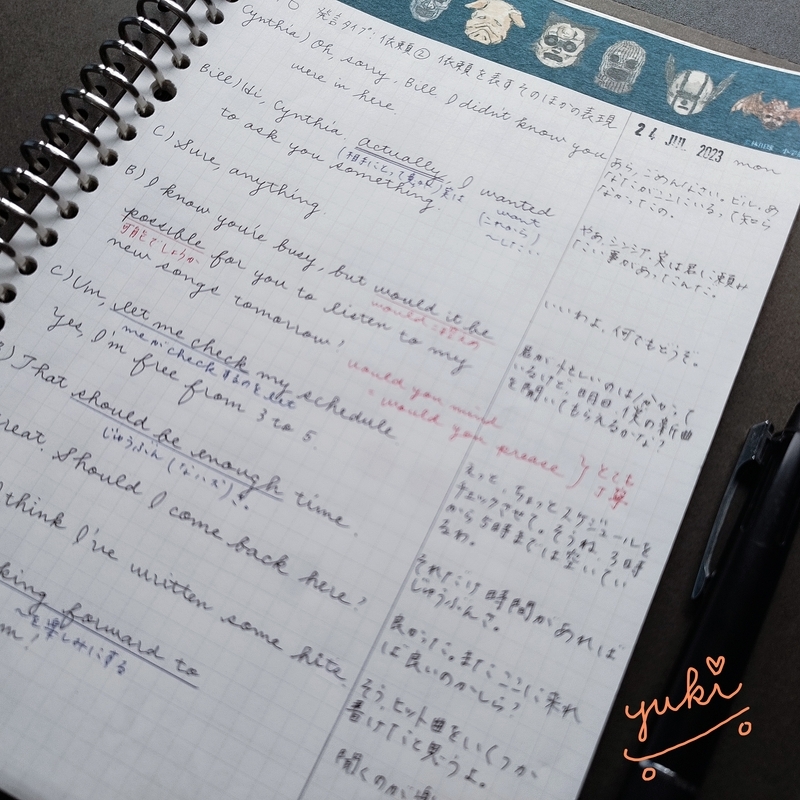 発言タイプ: 依頼② 依頼を表すそのほかの表現
24 JUL 2023 mon
Cynthia) Oh, sorry, Bill I didn't know you
were in here.
Bill) Hi, Cynthia. actually, I wanted
(相手にとって意外) 実は
to ask you something.
want
(これから)
〜したい
C) Sure, anything.
B) I know you're busy, but would it be
would
possible for you to listen to my
可能でしょうか
new songs tomorrow?
would you mind
would you prease
とても
丁寧
C) Um, let me check my schedule
me が check するのを let
Yes, I'm free from 3 to 5.
B) That should be enough time.
じゅうぶん (なはず) だ。
reat. Should I come back here?
think I've written some hits.
king forward to
〜を楽しみにする
m!
あら、ごめんなさい。ビル、あ
なたがここにいるって知ら
なかったの。
やあ、シンシア。実は君に頼み
たい事があったんだ。
いいわよ、何でもどうぞ。
君が忙しいのは分かって
いるけど、明日、僕の新曲
を聞いてもらえるかな?
えっと、ちょっとスケジュールを
チェックさせて。そうね、3時
から5時までは空いてい
るわ。
それだけ時間があれば
じゅうぶんさ。
良かった。またここに来れ
ば良いのかしら?
そう。ヒット曲をいくつか
書けたと思うよ。
聞くのが楽し
yuki